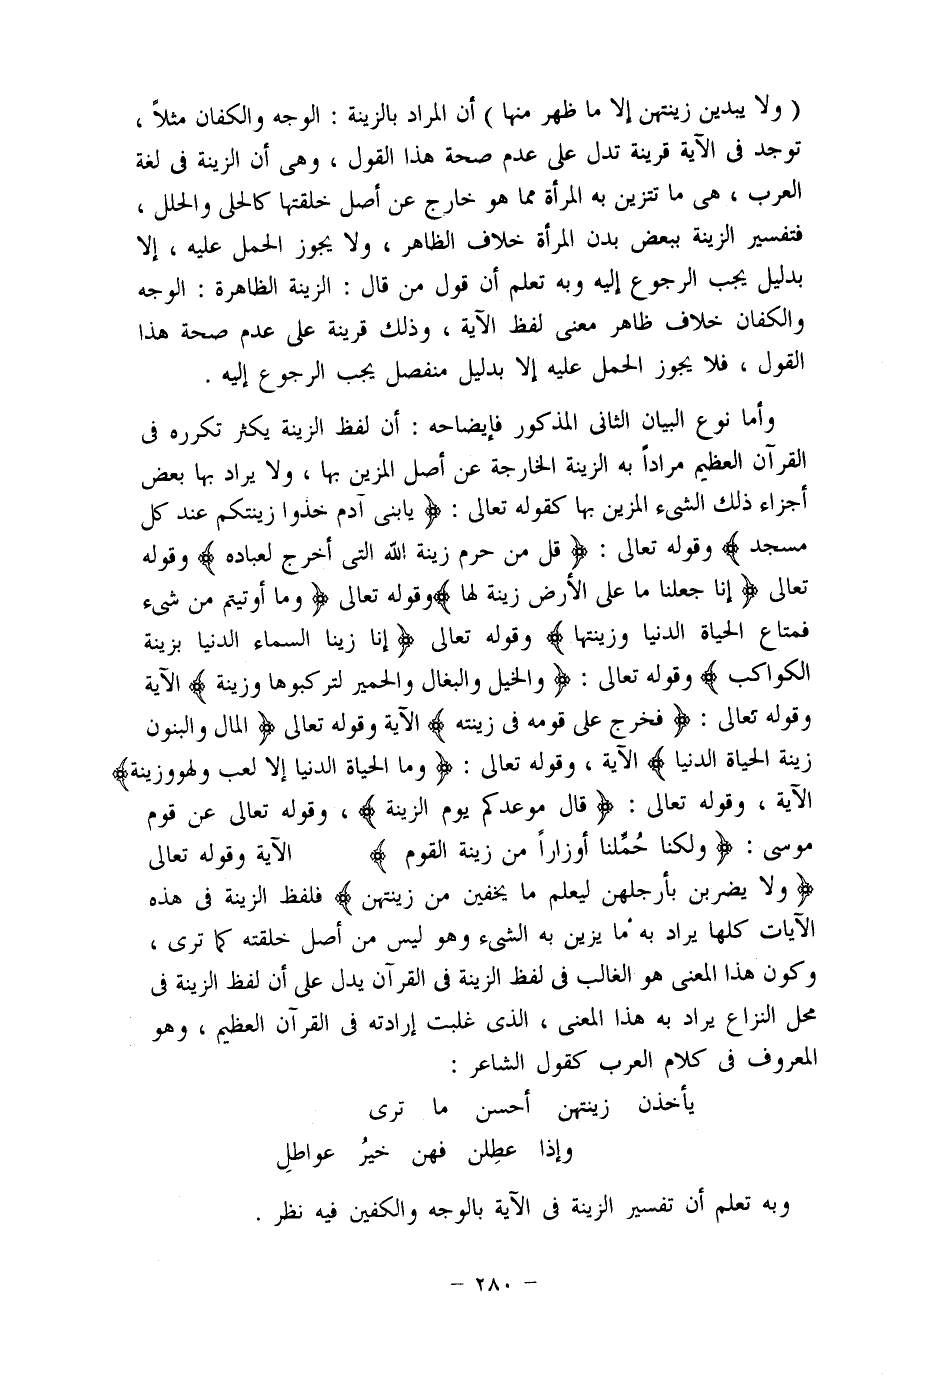 ( ولا يبدين زينتهن إلا ما ظهر منها ) أن المراد بالزينة : الوجه والكفان مثلاً ،
توجد فى الآية قرينة تدل على عدم صحة هذا القول ، وهى أن الزينة فى لغة
العرب ، هى ما تتزين به المرأة مما هو خارج عن أصل خلقتها كالحلى والحلل ،
فتفسير الزينة ببعض بدن المرأة خلاف الظاهر ، ولا يجوز الحمل عليه ، إلا
بدليل يجب الرجوع إليه وبه تعلم أن قول من قال : الزينة الظاهرة : الوجه
والكفان خلاف ظاهر معنى لفظ الآية ، وذلك قرينة على عدم صحة هذا
القول ، فلا يجوز الحمل عليه إلا بدليل منفصل يجب الرجوع إليه .
وأما نوع البيان الثانى المذكور فإيضاحه : أن لفظ الزينة يكثر تكرره فى
القرآن العظيم مراداً به الزينة الخارجة عن أصل المزين بها ، ولا يراد بها بعض
أجزاء ذلك الشىء المزين بها كقوله تعالى : ﴿ يابنى آدم خذوا زينتكم عند كل
مسجد ﴾ وقوله تعالى : ﴿ قل من حرم زينة الله التى أخرج لعباده ﴾ وقوله
تعالى ﴿ إنا جعلنا ما على الأرض زينة لها ﴾وقوله تعالى ﴿ وما أوتيتم من شىء
فمتاع الحياة الدنيا وزينتها ﴾ وقوله تعالى ﴿ إنا زينا السماء الدنيا بزينة
الكواكب ﴾ وقوله تعالى : ﴿ والخيل والبغال والحمير لتركبوها وزينة ﴾ الآية
وقوله تعالى : ﴿ فخرج على قومه فى زينته ﴾ الآية وقوله تعالى ﴿ المال والبنون
زينة الحياة الدنيا ﴾ الآية ، وقوله تعالى : ﴿ وما الحياة الدنيا إلا لعب ولهووزينة﴾
الآية ، وقوله تعالى : ﴿ قال موعدكم يوم الزينة ﴾ ، وقوله تعالى عن قوم
موسى : ﴿ ولكنا حُمِّلنا أوزاراً من زينة القوم ﴾ الآية وقوله تعالى
﴿ ولا يضربن بأرجلهن ليعلم ما يخفين من زينتهن ﴾ فلفظ الزينة فى هذه
الآيات كلها يراد به ما يزين به الشىء وهو ليس من أصل خلقته كما ترى ،
وكون هذا المعنى هو الغالب فى لفظ الزينة فى القرآن يدل على أن لفظ الزينة فى
محل النزاع يراد به هذا المعنى ، الذى غلبت إرادته فى القرآن العظيم ، وهو
المعروف فى كلام العرب كقول الشاعر :
يأخذن زينتهن أحسن ما ترى
وإذا عطِلن فهن خيرُ عواطلِ
وبه تعلم أن تفسير الزينة فى الآية بالوجه والكفين فيه نظر .
– ٢٨٠ –